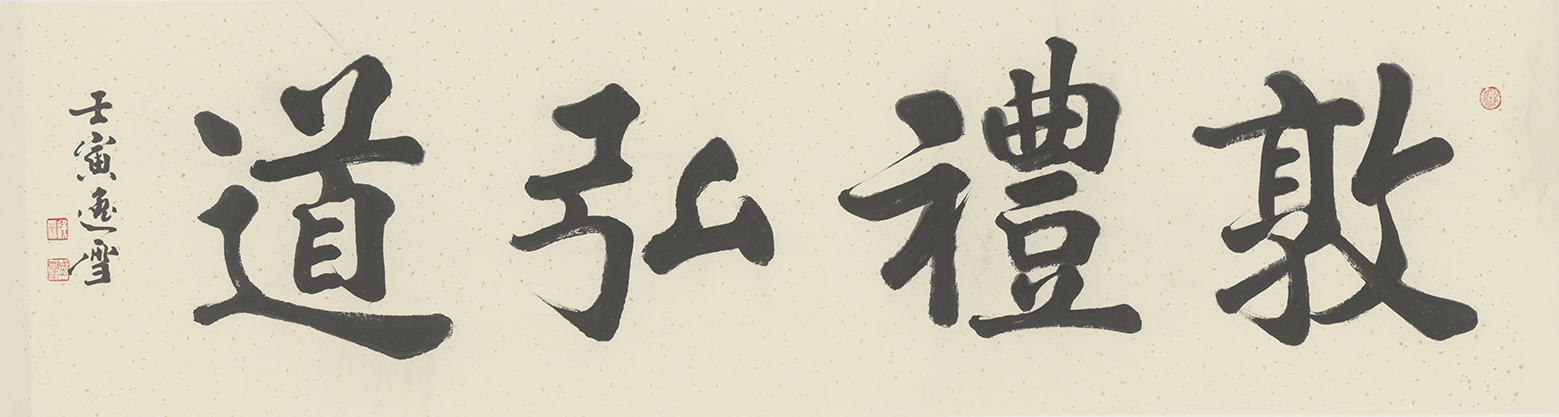 敦禮弘道
壬寅逸雪